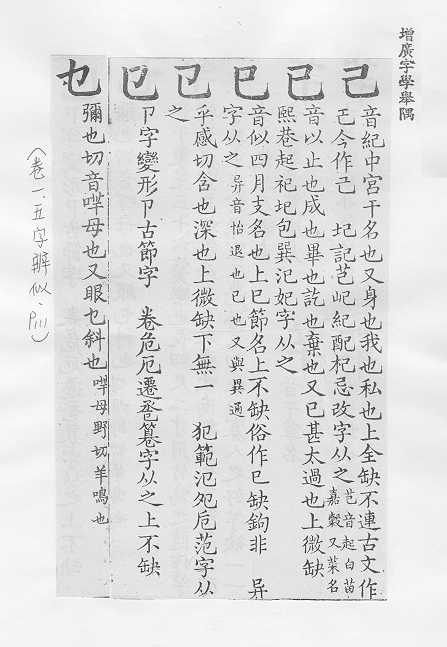 增廣字學舉隅
己
音紀中宮干名也又身也我也私也上全缺不連古文作
𢀒今作己 圮記芑屺紀配杞忌改字从之芑音起白苗嘉穀又菜名
已
音以止也成也畢也訖也棄也又已甚太過也上微缺
熙巷起祀圯包巽汜妃字从之
巳
音似四月支名也上巳節名上不缺俗作巳缺鉤非 异
字从之异音怡退也已也又與異通
㔾
乎感切含也深也上微缺下無一 犯範氾夗卮范字从
之
卩字變形卩古節字 卷危厄遷卺篹字从之上不缺
乜
彌也切音哶母也又眼乜斜也哶母野切羊鳴也
(卷一.五字辨似.P111)